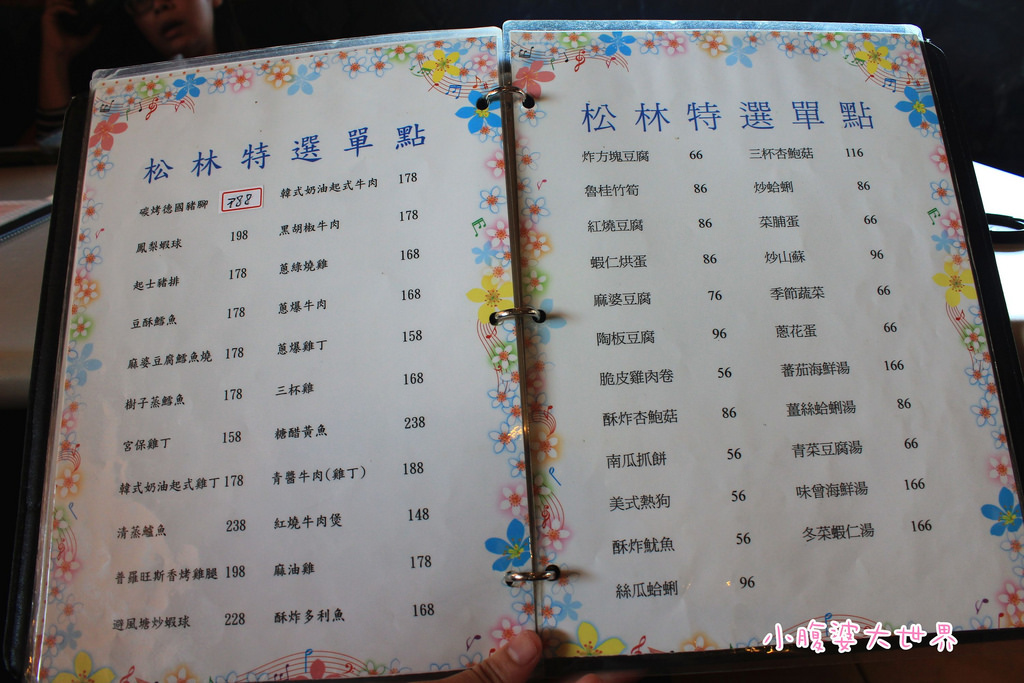 松林特選單點
碳烤德國豬腳 788 韓式奶油起式牛肉 178
鳳梨蝦球 198 黑胡椒牛肉 178
起士豬排 178 蔥綠燒雞 168
豆酥鱈魚 178 蔥爆牛肉 168
麻婆豆腐鱈魚燒 178 蔥爆雞丁 158
樹子蒸鱈魚 178 三杯雞 168
宮保雞丁 158 糖醋黃魚 238
韓式奶油起式雞丁 178 青醬牛肉(雞丁) 188
清蒸鱸魚 238 紅燒牛肉煲 148
普羅旺斯香烤雞腿 198 麻油雞 178
避風塘炒蝦球 228 酥炸多利魚 168
松林特選單點
炸方塊豆腐 66 三杯杏鮑菇 116
魯桂竹筍 86 炒蛤蜊 86
紅燒豆腐 86 菜脯蛋 66
蝦仁烘蛋 86 炒山蘇 96
麻婆豆腐 76 季節蔬菜 66
陶板豆腐 96 蔥花蛋 66
脆皮雞肉卷 56 蕃茄海鮮湯 166
酥炸杏鮑菇 86 薑絲蛤蜊湯 86
南瓜抓餅 56 青菜豆腐湯 66
美式熱狗 56 味曾海鮮湯 166
酥炸魷魚 56 冬菜蝦仁湯 166
絲瓜蛤蜊 96
小腹婆大世界